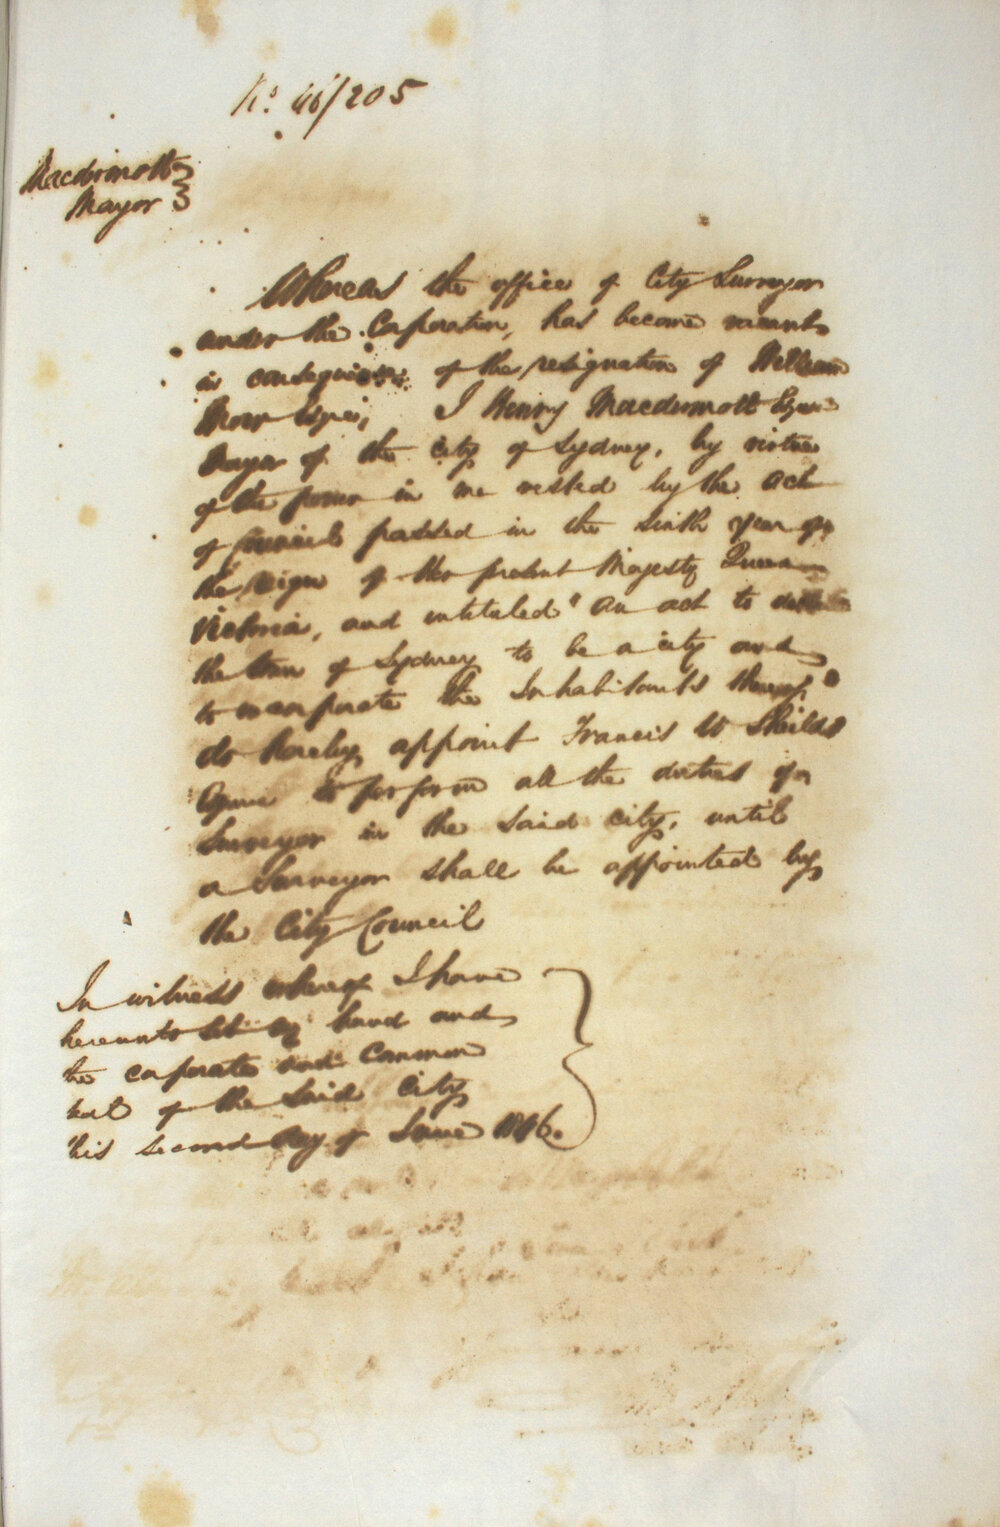 No 46/205
Macdermott
Mayor
Whereas the office of City Surveyor
under the Corporation, has become vacant
in consequence of the resignation of William
Mayor of the city of Sydney, by virtue
I Henry Macdermott Esquire
of the power in me vested by the act
of Council passed in the sixth year of
the reign of Her present Majesty Queen
Victoria, and intituled "An act to declare
the town of Sydney to be a city and
to incorporate the Inhabitants thereof,"
do hereby appoint Francis W Sheilds
Esquire to perform all the duties of a
Surveyor in the said city, until
a Surveyor shall be appointed by
the City Council
In witness whereof I have
hereunto set my hand and
the corporate and common
seal of the said City
this second day of June 1846.